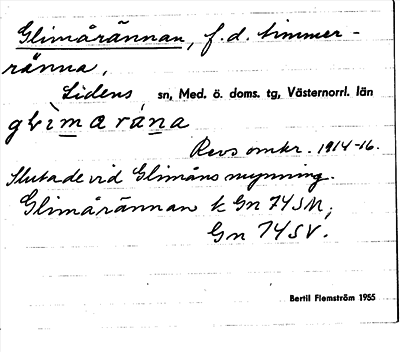 Glimårännan, f.d. timmer-
ränna,
Lidens sn, Med. ö. doms. tg, Västernorrl. län
Revs omkr. 1914-16.
Slutade vid Glimåns mynning.
Glimårännan k Gn 74SM;
Gn 74SV.
Bertil Flemström 1955